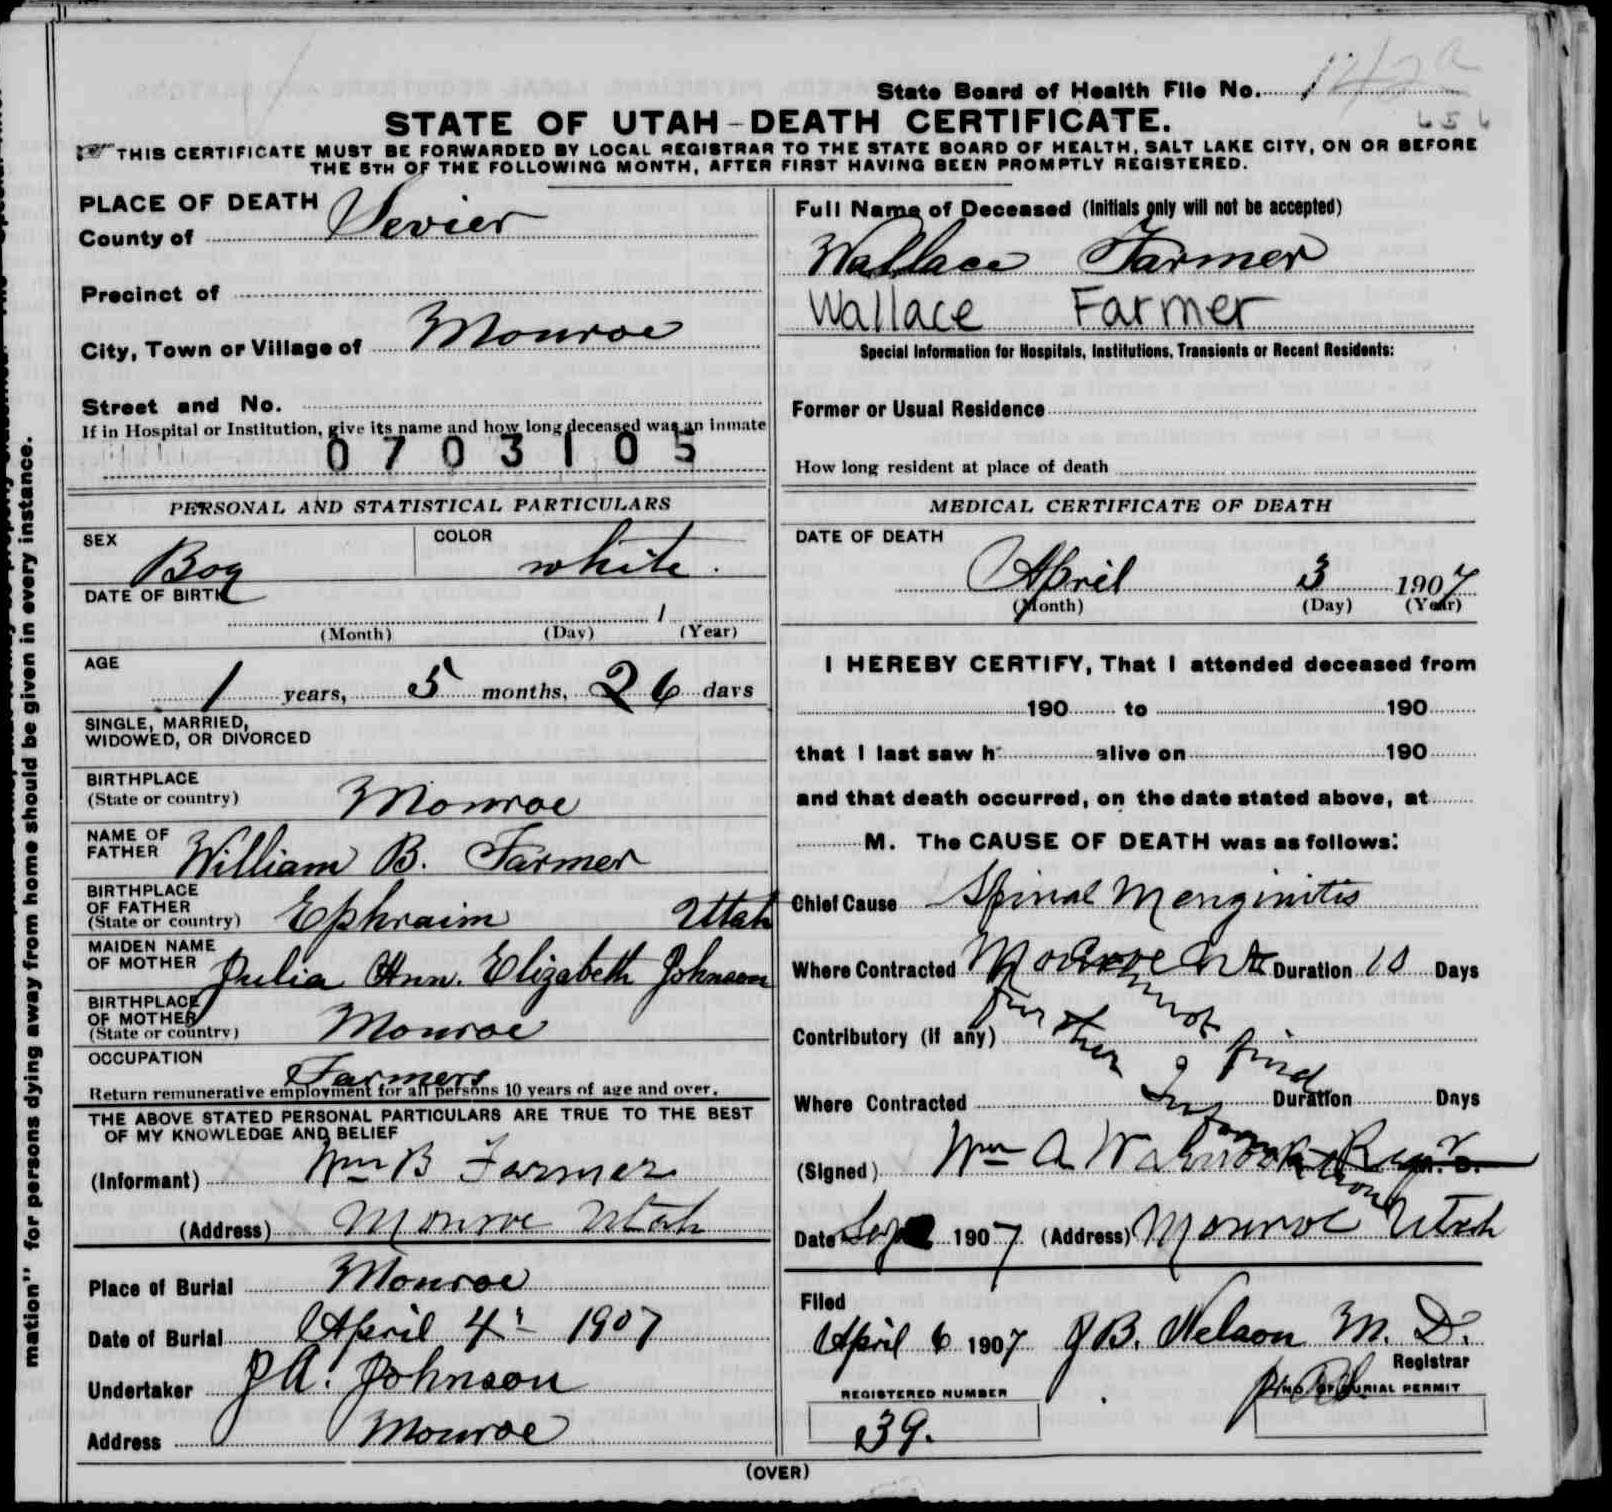 mation" for persons dying away from home should be given in every instance.
State Board of Health File No. 142a
656
STATE OF UTAH-DEATH CERTIFICATE.
THIS CERTIFICATE MUST BE FORWARDED BY LOCAL REGISTRAR TO THE STATE BOARD OF HEALTH, SALT LAKE CITY, ON OR BEFORE
THE 5TH OF THE FOLLOWING MONTH, AFTER FIRST HAVING BEEN PROMPTLY REGISTERED.
PLACE OF DEATH
County of Sevier
Precinct of
City, Town or Village of Monroe
Street and No.
If in Hospital or Institution, give its name and how long deceased was an inmate
0703105
PERSONAL AND STATISTICAL PARTICULARS
SEX Boy COLOR white.
DATE OF BIRTH
1
(Month) (Day) (Year)
AGE
1 years, 5 months, 26 days
SINGLE, MARRIED,
WIDOWED, OR DIVORCED
BIRTHPLACE
(State or country) Monroe
NAME OF
FATHER William B. Farmer
BIRTHPLACE
OF FATHER
(State or country) Ephraim Utah
MAIDEN NAME
OF MOTHER Julia Ann. Elizabeth Johnson
BIRTHPLACE
OF MOTHER
(State or country) Monroe
OCCUPATION
Farmers
Return remunerative employment for all persons 10 years of age and over.
THE ABOVE STATED PERSONAL PARTICULARS ARE TRUE TO THE BEST
OF MY KNOWLEDGE AND BELIEF
(Informant) Wm B Farmer
(Address) Monroe Utah
Place of Burial Monroe
Date of Burial April 4 1907
Undertaker J A. Johnson
Address Monroe
Full Name of Deceased (Initials only will not be accepted)
Wallace Farmer
Wallace Farmer
Special Information for Hospitals, Institutions, Transients or Recent Residents:
Former or Usual Residence
How long resident at place of death
MEDICAL CERTIFICATE OF DEATH
DATE OF DEATH
April 3 1907
(Month) (Day) (Year)
I HEREBY CERTIFY, That I attended deceased from
190 to 190
that I last saw h alive on 190
and that death occurred, on the date stated above, at
M. The CAUSE OF DEATH was as follows:
Chief Cause Spinal Menginitis
Where Contracted Monroe Duration 10 Days
Contributory (if any)
cannot find
further Information
Where Contracted Duration Days
(Signed) Wm A Warnock Regr M. D.
Date 1907 (Address) Monroe Utah
Filed
April 6 1907 J B. Nelson M. D.
Registrar
REGISTERED NUMBER
39.
NO. OF BURIAL PERMIT
(OVER)